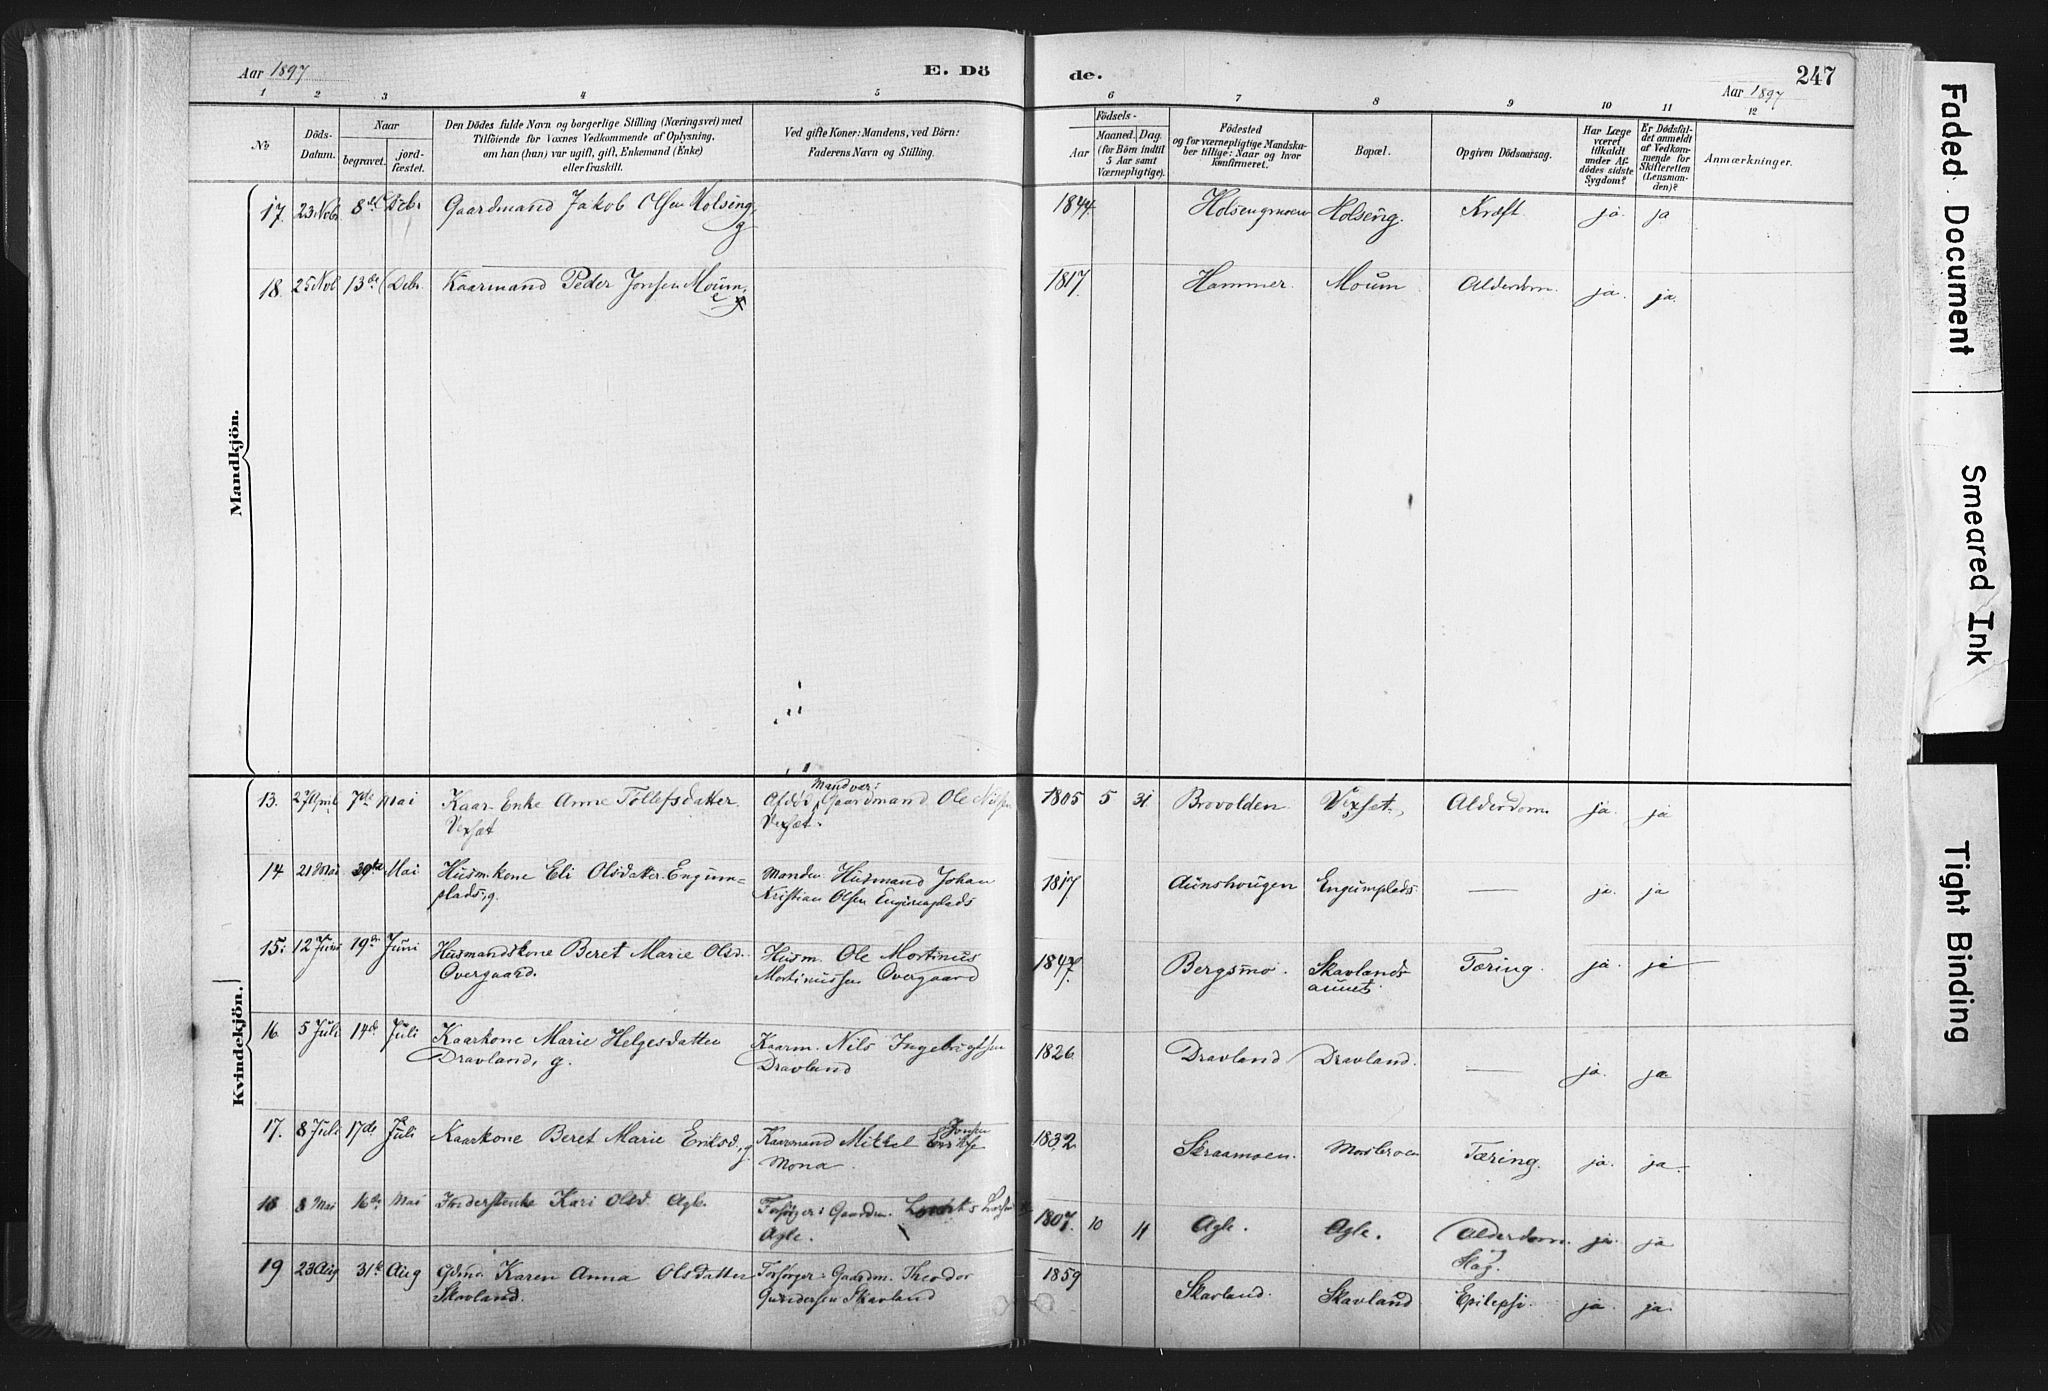 Aar 1897
E. Dö
de.
247
Aar 1897
1 2 3 4 5 6 7 8 9 10 11 12
№
Döds-
Datum.
Naar
begravet.
jord-
fæstet.
Den Dödes fulde Navn og borgerlige Stilling (Næringsvei) med
Tilföiende for Voxnes Vedkommende af Oplysning,
om han (hun) var ugift, gift, Enkemand (Enke)
eller fraskilt.
Ved gifte Koner: Mandens, ved Börn:
Faderens Navn og Stilling.
Födsels-
Aar
Maaned. Dag.
(for Börn indtil
5 Aar samt
Værnepligtige).
Födested
og for værnepligtige Mandska-
ber tillige: Naar og hvor
konfirmeret.
Bopæl.
Opgiven Dödsaarsag.
Har Læge
været
tilkaldt
under Af-
dödes sidste
Sygdom?
Er Dödsfal-
det anmeldt
af Vedkom-
mende for
Skifteretten
(Lensman-
den)?
Anmærkninger.
Mandkjön.
17. 23 Nobr 8de Debr Gaardmand Jakob Olsen Holseng, g 1844. Holsengmoen Holseng. Kræft. ja. ja
18. 25 Nob. 13de Debr. Kaarmand Peder Jonsen Moum, 1817. Hammer. Moum Alderdom. ja. ja.
Kvindekjön.
13. 27 April 7de Mai Kaar Enke Anne Tollefsdatter
Vexsæt
Mand ver:
Afdöd Gaardmand Ole Nilsen
Vexsæt.
1805 5 31 Brovolden. Vexsæt. Alderdom. ja. ja
14 21 Mai Mai Husm.kone Eli Olsdatter Engum=
plads, g.
Manden Husmand Johan
Kristian Olsen Engumplads
1817. Aunshougen Engumplads — ja. ja
15. 12 Juni 19de Juni Husmandskone Beret Marie Olsd.
Overgaard.
Husm. Ole Mortinus
Mortinussen Overgaard
1847. Bergsmo. Skavlands
aunet.
Tæring. ja. ja
16. 5 Juli 14de Juli Kaarkone Marie Helgesdatter
Dravland, g.
Kaarm. Nils Ingebrigtsen
Dravland
1826. Dravland Dravland. — ja. ja
17. 8 Juli 17de Juli Kaarkone Beret Marie Eriksd., g.
Kaarmand Mikkel
Jonsen
Mona.
1832. Skraamoen. Tæring. ja. ja.
18 8 Mai 16de Mai Kari Olsd. Agle.
Forsörger: Gaardm.
Agle.
1807. 10 11 Agle. Agle. Alderdom. ja. ja
19 23 Aug 31te Aug Karen Anna Olsdatter
Skavland.
Forsörger: Gaardm. Theodor
Gundersen Skavland
1859 Skavland. Skavland Epilepsi. ja. ja.
Faded Document
Smeared Ink
Tight Binding